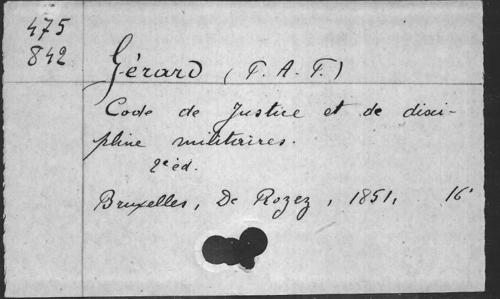 475
842
Gérard (P. A. F.)
Code de Justice et de disci-
pline militaires.
2e éd.
Bruxelles, De Rozez, 1851, 16°